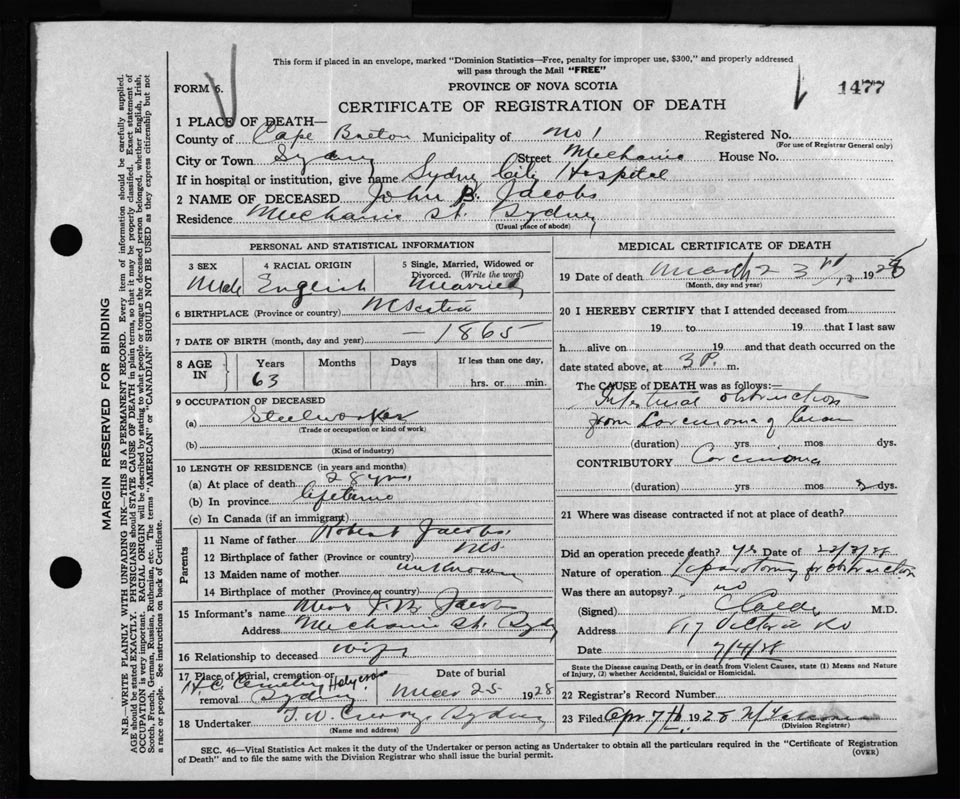 This form if placed in an envelope, marked "Dominion Statistics—Free, penalty for improper use, $300," and properly addressed
will pass through the Mail "FREE"
FORM 6.
PROVINCE OF NOVA SCOTIA
1477
CERTIFICATE OF REGISTRATION OF DEATH
1 PLACE OF DEATH—
County of Cape Breton Municipality of No 1 Registered No.
(For use of Registrar General only)
City or Town Sydney Street Mechanic House No.
If in hospital or institution, give name Sydney City Hospital
2 NAME OF DECEASED John B. Jacobs
Residence Mechanic St. Sydney
(Usual place of abode)
PERSONAL AND STATISTICAL INFORMATION
3 SEX
Male
4 RACIAL ORIGIN
English
5 Single, Married, Widowed or
Divorced. (Write the word)
Married
6 BIRTHPLACE (Province or country) N Scotia
7 DATE OF BIRTH (month, day and year) — 1865
8 AGE IN
Years
63
Months
Days
If less than one day,
hrs. or min.
9 OCCUPATION OF DECEASED
(a) Steelworker
(Trade or occupation or kind of work)
(b)
(Kind of industry)
10 LENGTH OF RESIDENCE (in years and months)
(a) At place of death 28 yrs.
(b) In province lifetime
(c) In Canada (if an immigrant)
Parents
11 Name of father Robert Jacobs.
12 Birthplace of father (Province or country) N.S.
13 Maiden name of mother unknown
14 Birthplace of mother (Province or country)
15 Informant's name Mrs J. B. Jacobs
Address Mechanic St. Sydney
16 Relationship to deceased wife
17 Place of burial, cremation or
removal H.C. Cemetery Holy cross Sydney
Date of burial
Mar 25 1928
18 Undertaker T. W. Sydney
(Name and address)
MEDICAL CERTIFICATE OF DEATH
19 Date of death March 23rd, 1928
(Month, day and year)
20 I HEREBY CERTIFY that I attended deceased from
19 to 19 that I last saw
h alive on 19 and that death occurred on the
date stated above, at 3 P. m.
The CAUSE of DEATH was as follows:—
Intestinal obstruction
from Carcinoma of
(duration) yrs. mos. dys.
CONTRIBUTORY Carcinoma
(duration) yrs. mos. dys.
21 Where was disease contracted if not at place of death?
Did an operation precede death? yes Date of
Nature of operation Laparotomy for obstruction
Was there an autopsy? no
(Signed) M.D.
Address Victoria Rd
Date 7/4/28
State the Disease causing Death, or in death from Violent Causes, state (1) Means and Nature
of Injury, (2) whether Accidental, Suicidal or Homicidal.
22 Registrar's Record Number
23 Filed Apr 7th 1928
(Division Registrar)
SEC. 46—Vital Statistics Act makes it the duty of the Undertaker or person acting as Undertaker to obtain all the particulars required in the "Certificate of Registration
of Death" and to file the same with the Division Registrar who shall issue the burial permit.
(OVER)
MARGIN RESERVED FOR BINDING
N.B.—WRITE PLAINLY WITH UNFADING INK—THIS IS A PERMANENT RECORD. Every item of information should be carefully supplied.
AGE should be stated EXACTLY. PHYSICIANS should STATE CAUSE OF DEATH in plain terms, so that it may be properly classified. Exact statement of
OCCUPATION is very important. RACIAL ORIGIN will be described by stating to what people or tongue the deceased person belonged, whether English, Irish,
Scotch, French, German, Russian, Ruthenian, etc. The terms "AMERICAN" or "CANADIAN" SHOULD NOT BE USED as they express citizenship but not
a race or people. See instructions on back of Certificate.